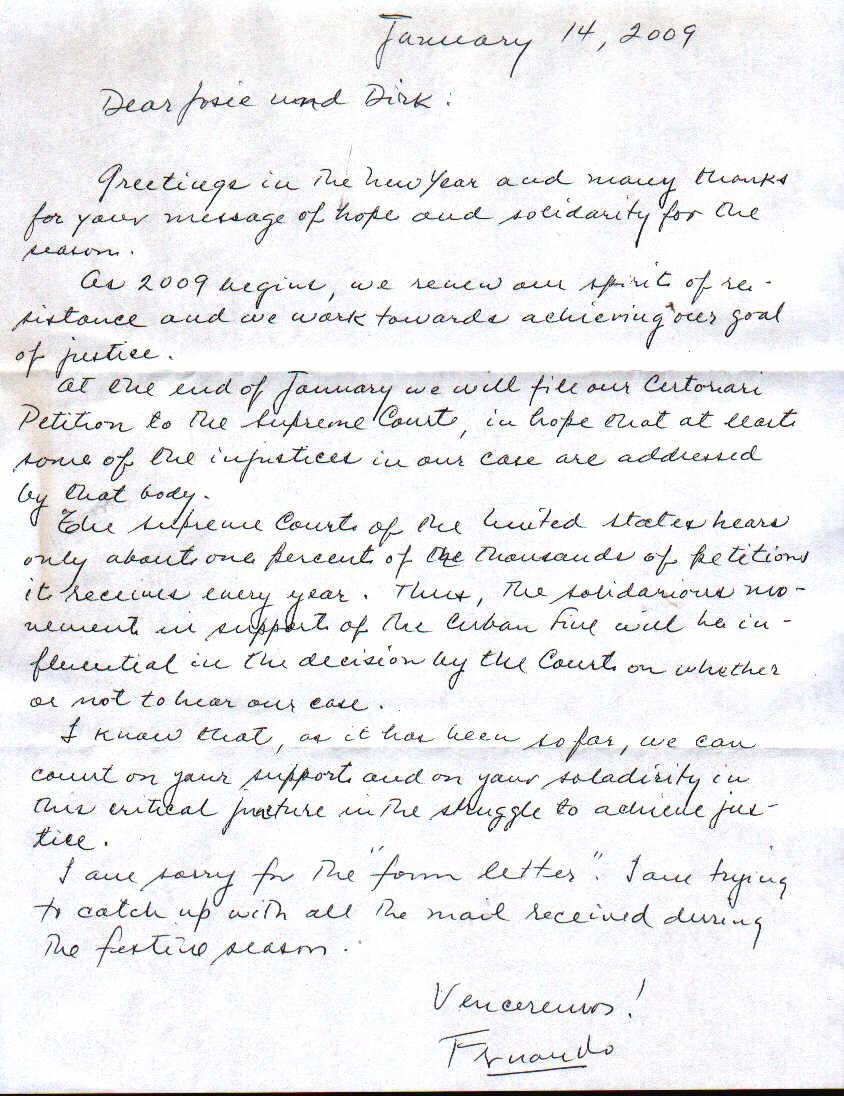 January 14, 2009
Dear Josie und Dirk:
Greetings in the New Year and many thanks
for your message of hope and solidarity for the
season.
As 2009 begins, we renew our spirit of re-
sistance and we work towards achieving our goal
of justice.
At the end of January we will file our Certorari
Petition to the Supreme Court, in hope that at least
some of the injustices in our case are addressed
by that body.
The Supreme Court of the United States hears
only about one percent of the thousands of petitions
it receives every year. Thus, the solidarious mo-
vement in support of the Cuban Five will be in-
fluential in the decision by the Court on whether
or not to hear our case.
I know that, as it has been so far, we can
count on your support and on your soladirity in
this critical juncture in the struggle to achieve jus-
tice.
I am sorry for the "form letter". I am trying
to catch up with all the mail received during
the festive season.
Venceremos!
Fernando